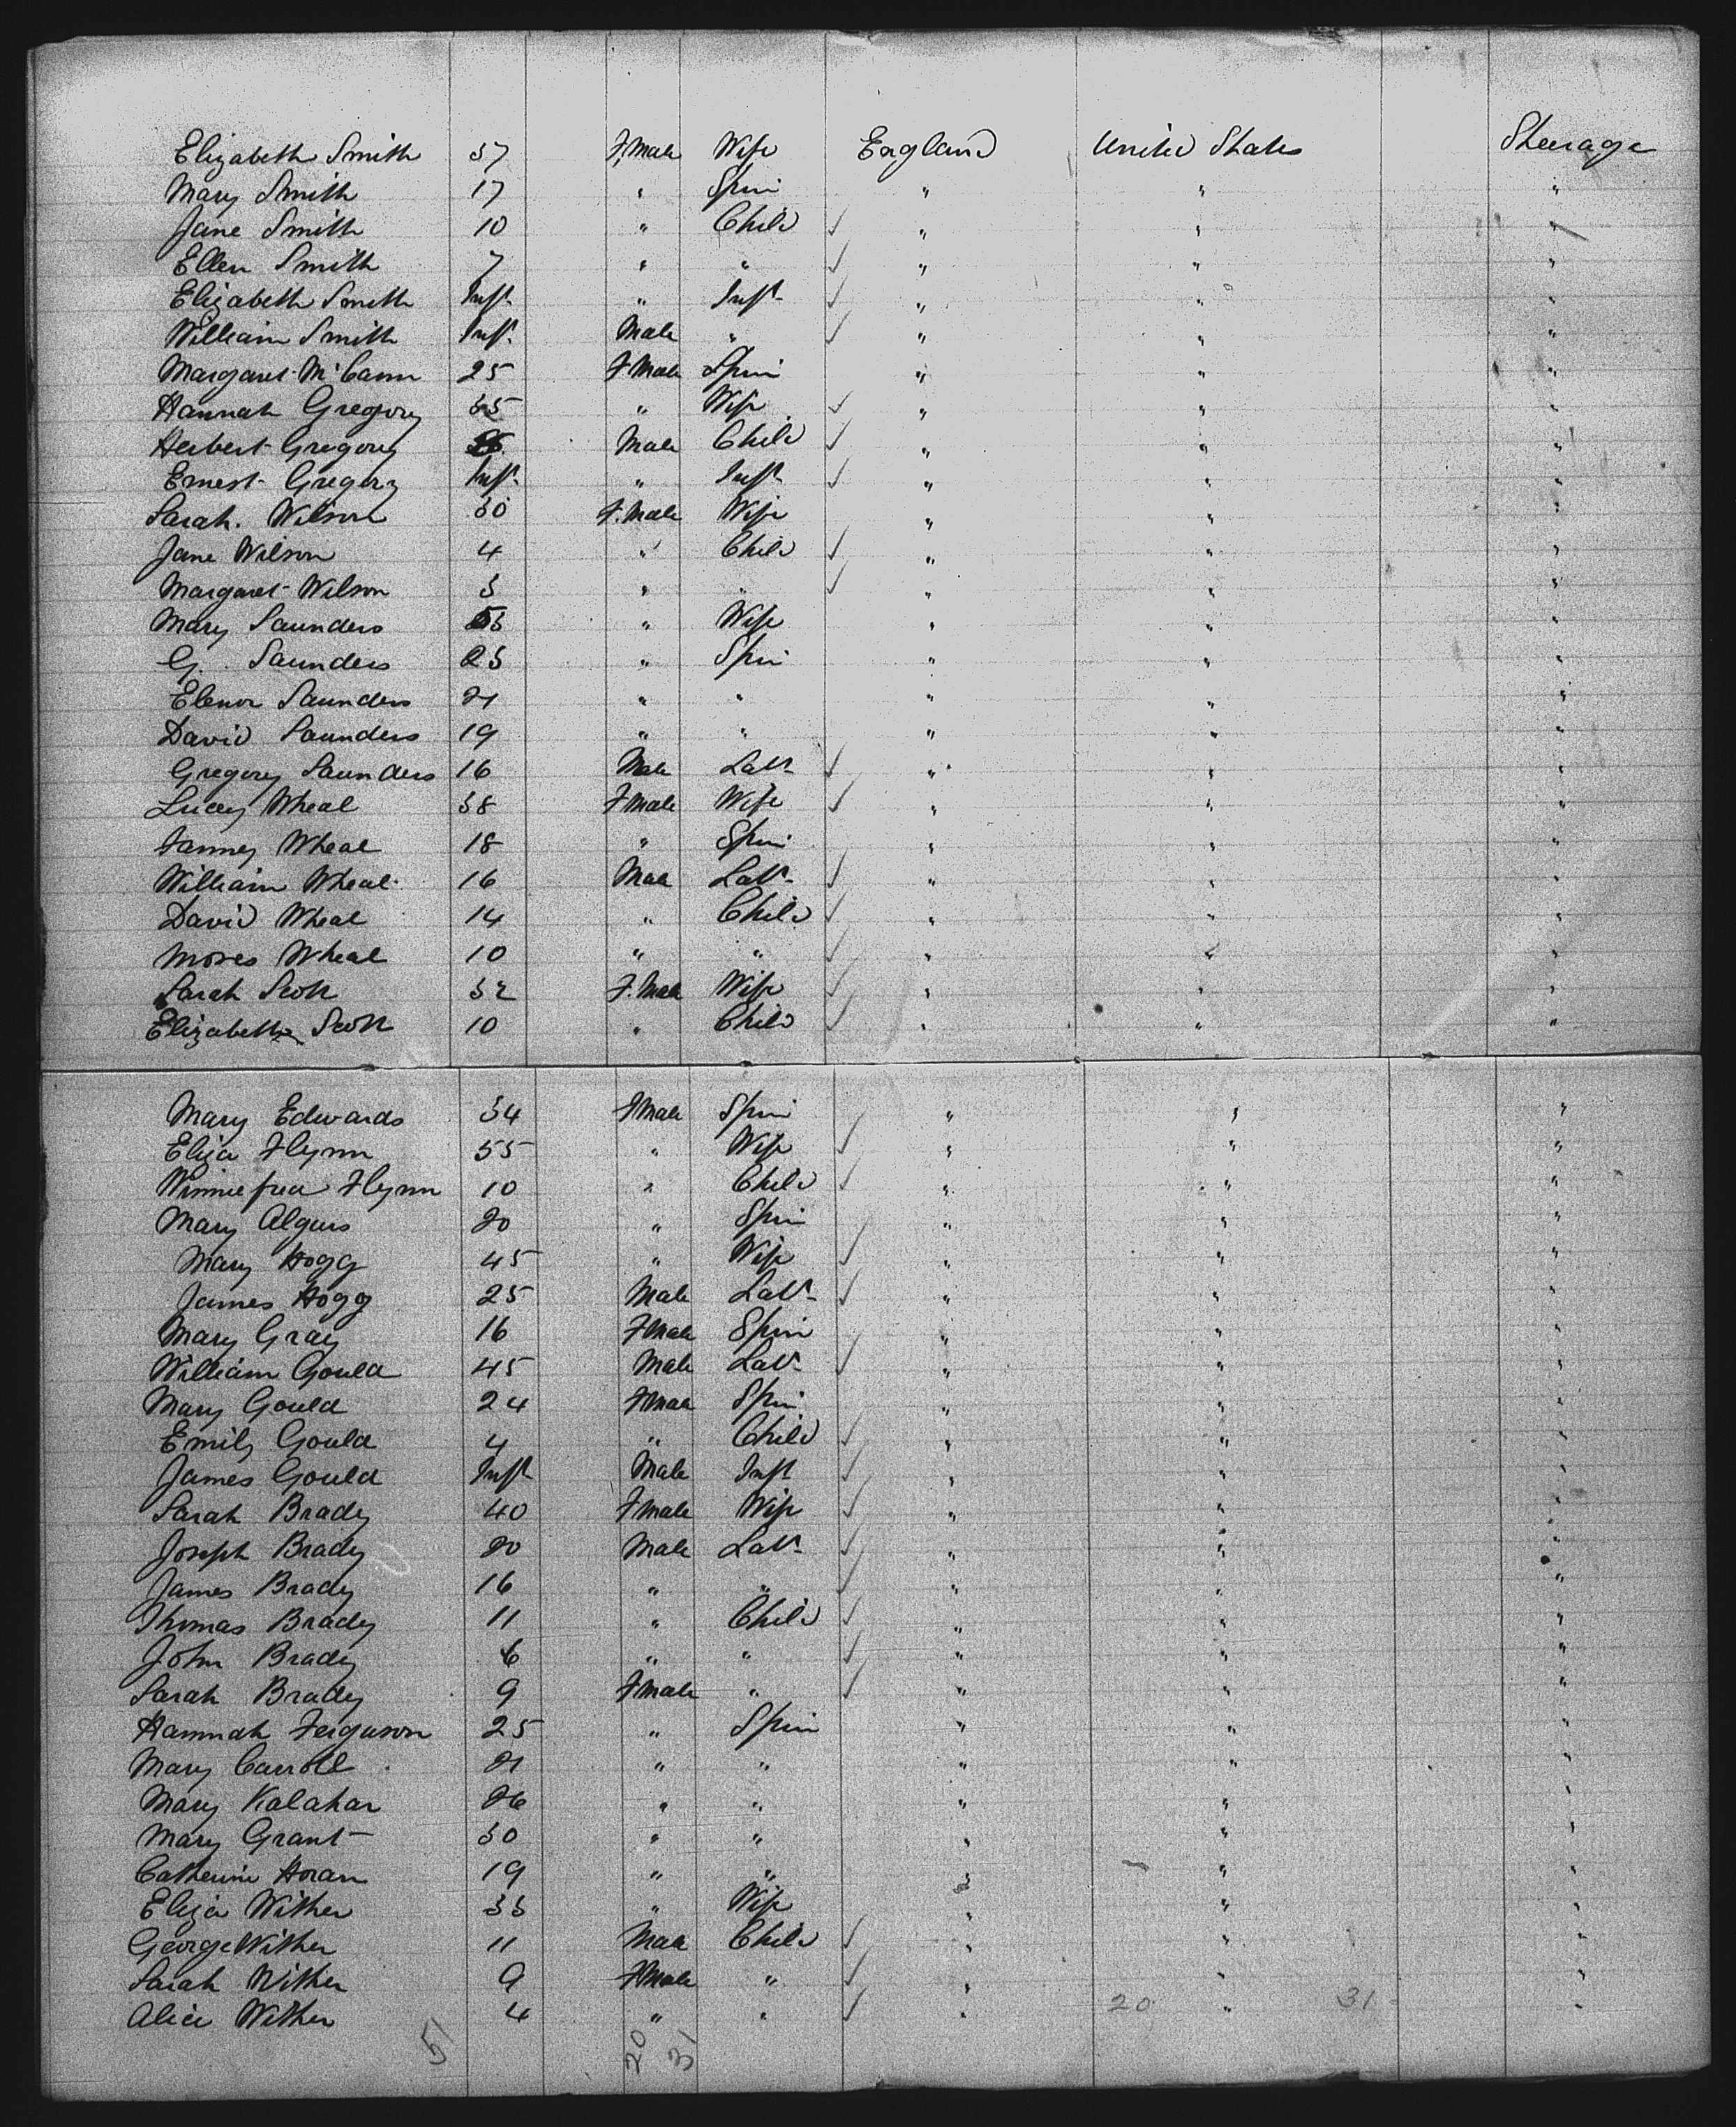 Elizabeth Smith 37 F.Male Wife England United States Steerage
Mary Smith 17 " Spin " " "
Jane Smith 10 " Child ✓ " " "
Ellen Smith 7 " " ✓ " " "
Elizabeth Smith Inft " Inft ✓ " " "
William Smith Inft Male " ✓ " " "
Margaret McCann 25 F Male Spin " " "
Hannah Gregory 35 " Wife ✓ " " "
Herbert Gregory Male Child ✓ " " "
Ernest Gregory Inft " Inft ✓ " " "
Sarah. Wilson 30 F.Male Wife " " "
Jane Wilson 4 " Child ✓ " " "
Margaret Wilson 3 " " ✓ " " "
Mary Saunders 53 " Wife " " "
G. Saunders 23 " Spin " " "
Elenor Saunders 21 " " " " "
David Saunders 19 " " " " "
Gregory Saunders 16 Male Labr ✓ " " "
Lucey Wheal 38 F Male Wife ✓ " " "
Fanney Wheal 18 " Spin " " "
William Wheal 16 Male Labr ✓ " " "
David Wheal 14 " Child ✓ " " "
Moses Wheal 10 " " ✓ " " "
Sarah Scott 32 F.Male Wife ✓ " " "
Elizabeth Scott 10 " Child ✓ " " "
Mary Edwards 34 F Male Spin ✓ " " "
Eliza Flynn 35 " Wife ✓ " " "
Winniefred Flynn 10 " Child ✓ " " "
Mary Algurs 20 " Spin " " "
Mary Hogg 45 " Wife ✓ " " "
James Hogg 25 Male Labr ✓ " " "
Mary Gray 16 F Male Spin " " "
William Gould 45 Male Labr ✓ " " "
Mary Gould 24 F Male Spin " " "
Emily Gould 4 " Child ✓ " " "
James Gould Inft Male Inft ✓ " " "
Sarah Brady 40 F Male Wife ✓ " " "
Joseph Brady 20 Male Labr ✓ " " "
James Brady 16 " " ✓ " " "
Thomas Brady 11 " Child ✓ " " "
John Brady 6 " " ✓ " " "
Sarah Brady 9 F Male " ✓ " " "
Hannah Ferguson 25 " Spin " " "
Mary Carroll 21 " " " " "
Mary Kalahar 26 " " " " "
Mary Grant 30 " " " " "
Catherine Horan 19 " " " " "
Eliza Wither 33 " Wife " " "
George Wither 11 Male Child ✓ " " "
Sarah Wither 9 F Male " ✓ " " "
Alice Wither 4 " " ✓ " 20 " 31 "
51 20 31